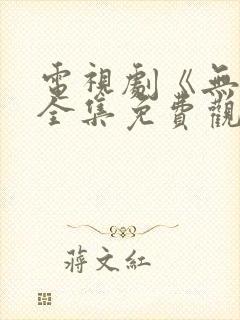 電視劇《無
全集免費觀
蔣文紅